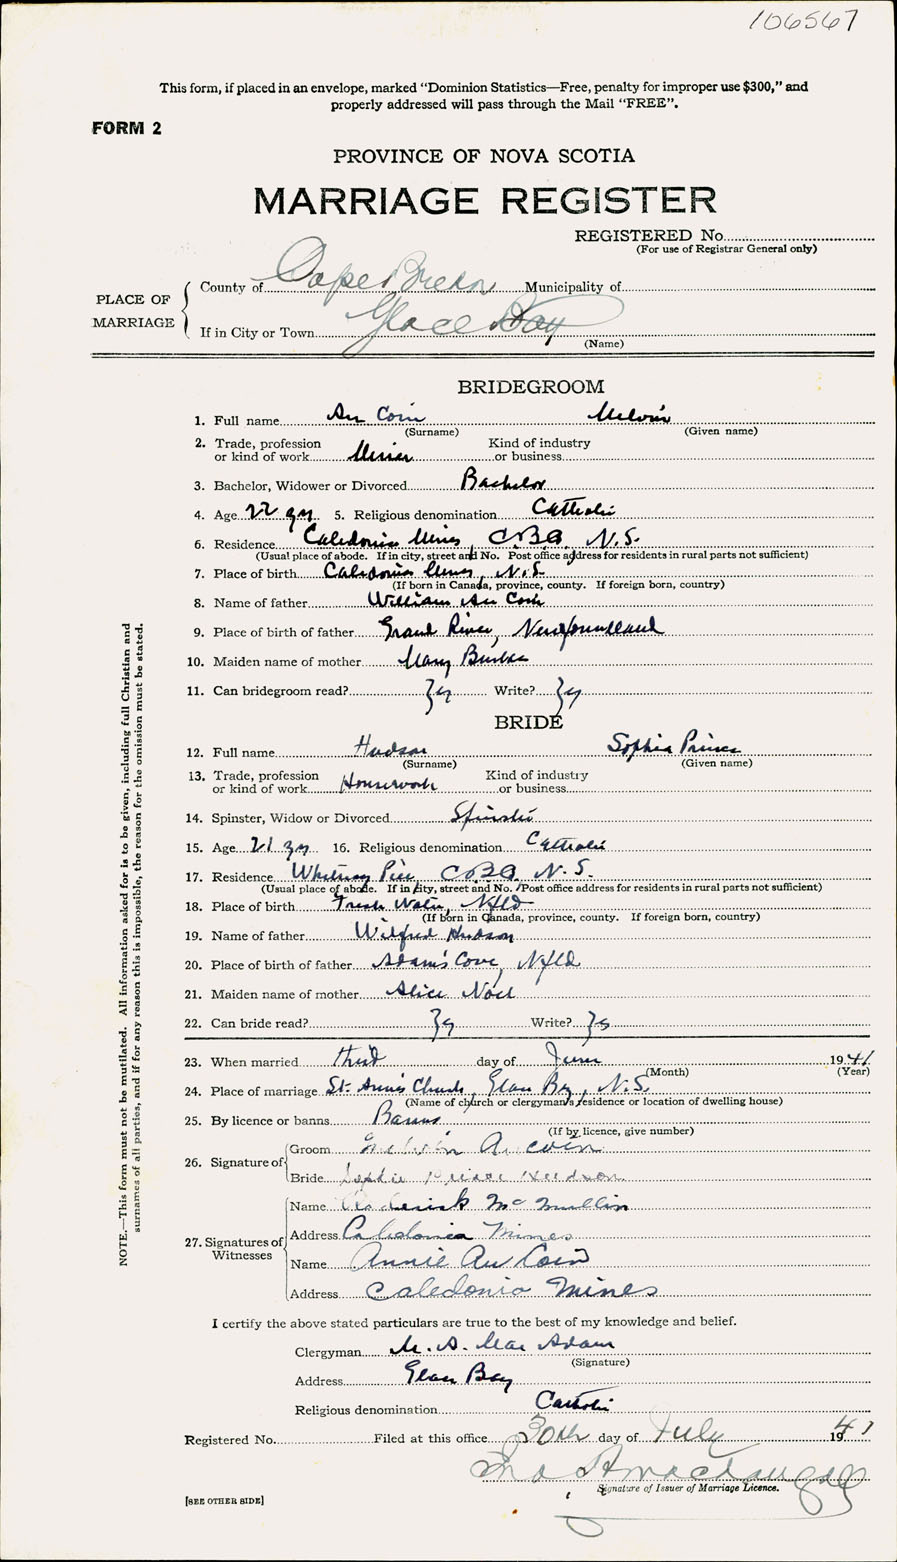 106567
This form, if placed in an envelope, marked "Dominion Statistics—Free, penalty for improper use $300," and
properly addressed will pass through the Mail "FREE".
FORM 2
PROVINCE OF NOVA SCOTIA
MARRIAGE REGISTER
REGISTERED No.
(For use of Registrar General only)
PLACE OF MARRIAGE
County of Cape Breton Municipality of
If in City or Town Glace Bay
(Name)
BRIDEGROOM
1. Full name Au Coin Melvin
(Surname) (Given name)
2. Trade, profession or kind of work Miner Kind of industry or business
3. Bachelor, Widower or Divorced Bachelor
4. Age 22 yrs 5. Religious denomination Catholic
6. Residence Caledonia Mines, C.B.Co, N.S.
(Usual place of abode. If in city, street and No. Post office address for residents in rural parts not sufficient)
7. Place of birth Caledonia Mines, N.S.
(If born in Canada, province, county. If foreign born, country)
8. Name of father William Au Coin
9. Place of birth of father Grand River, Newfoundland
10. Maiden name of mother Mary Burke
11. Can bridegroom read? Write?
BRIDE
12. Full name Hudson Sophia Prince
(Surname) (Given name)
13. Trade, profession or kind of work Housework Kind of industry or business
14. Spinster, Widow or Divorced Spinster
15. Age 21 yrs 16. Religious denomination Catholic
17. Residence Whitney Pier C.B.Co, N.S.
(Usual place of abode. If in city, street and No. Post office address for residents in rural parts not sufficient)
18. Place of birth Fresh Water, Nfld
(If born in Canada, province, county. If foreign born, country)
19. Name of father Wilfred Hudson
20. Place of birth of father Adam's Cove, Nfld
21. Maiden name of mother Alice Noel
22. Can bride read? Write?
23. When married third day of June 1941
(Month) (Year)
24. Place of marriage St. Ann's Church, Glace Bay, N.S.
(Name of church or clergyman's residence or location of dwelling house)
25. By licence or banns Banns
(If by licence, give number)
26. Signature of
Groom Melvin Aucoin
Bride Sophie Prince Hudson
27. Signatures of Witnesses
Name Roderick McMullin
Address Caledonia Mines
Name Annie Au Coin
Address Caledonia Mines
I certify the above stated particulars are true to the best of my knowledge and belief.
Clergyman M. A. MacAdam
(Signature)
Address Glace Bay
Religious denomination Catholic
Registered No. Filed at this office 30th day of July 1941
MacDougall
Signature of Issuer of Marriage Licence.
[SEE OTHER SIDE]
NOTE.—This form must not be mutilated. All information asked for is to be given, including full Christian and
surnames of all parties, and if for any reason this is impossible, the reason for the omission must be stated.